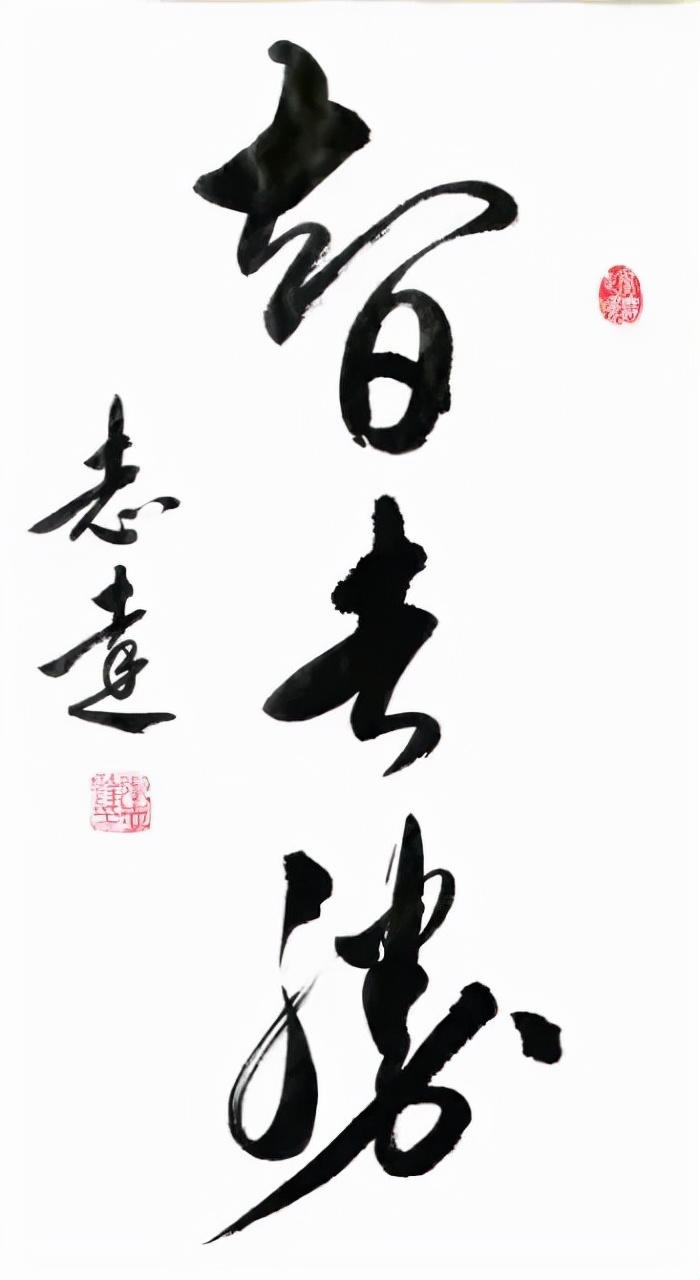 智者勝
志達